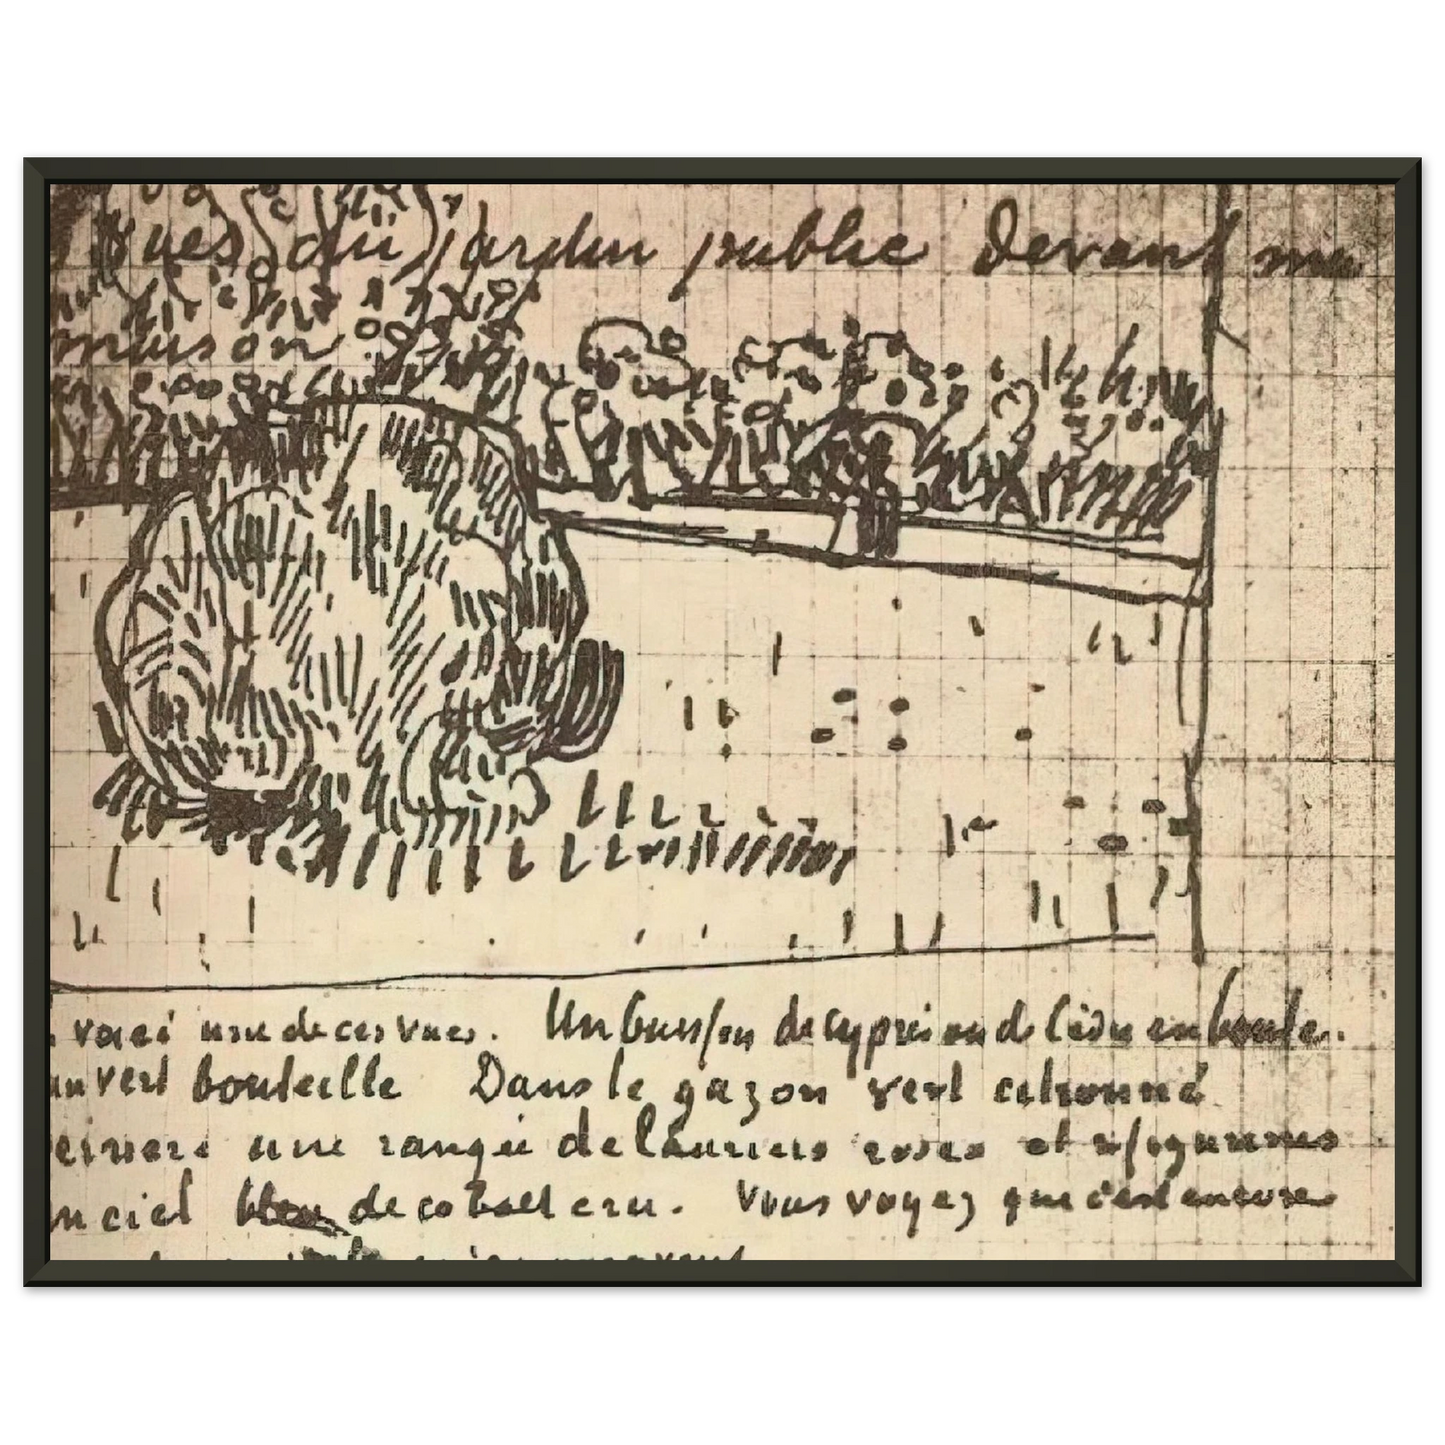 vues du jardin public devant ma
maison
voici une de ces vues. Un buisson de cyprès ou de cèdre en boule.
un vert bouteille Dans le gazon vert citronné
une rangée de lauriers roses et
un ciel bleu de cobalt cru. Vous voyez que c'est encore